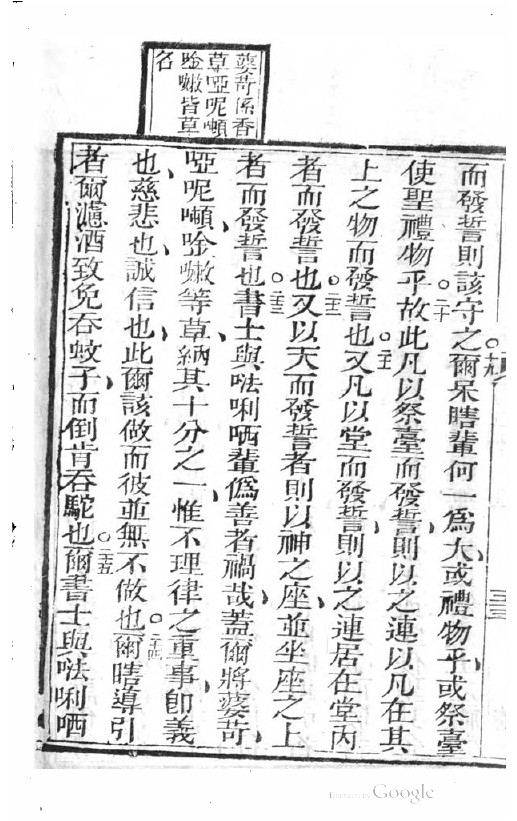 葵苛係香
草啞呢囇
唫㘔皆草
名
而發誓則該守之○十九爾呆瞎輩何一爲大或禮物乎或祭臺
使聖禮物乎○二十故此凡以祭臺而發誓則以之連以凡在其
上之物而發誓也○二十一又凡以堂而發誓則以之連居在堂內
者而發誓也○二十二又以天而發誓者則以神之座並坐座之上
者而發誓也○二十三書士與𠵽唎哂輩僞善者禍哉蓋爾將葵苛
啞呢囇唫㘔等草納其十分之一惟不理律之重事卽義
也慈悲也誠信也此爾該做而彼並無不做也○二十四爾瞎導引
者爾濾酒致免吞蚊子而倒肯吞駝也○二十五爾書士與𠵽唎哂
Digitized by Google